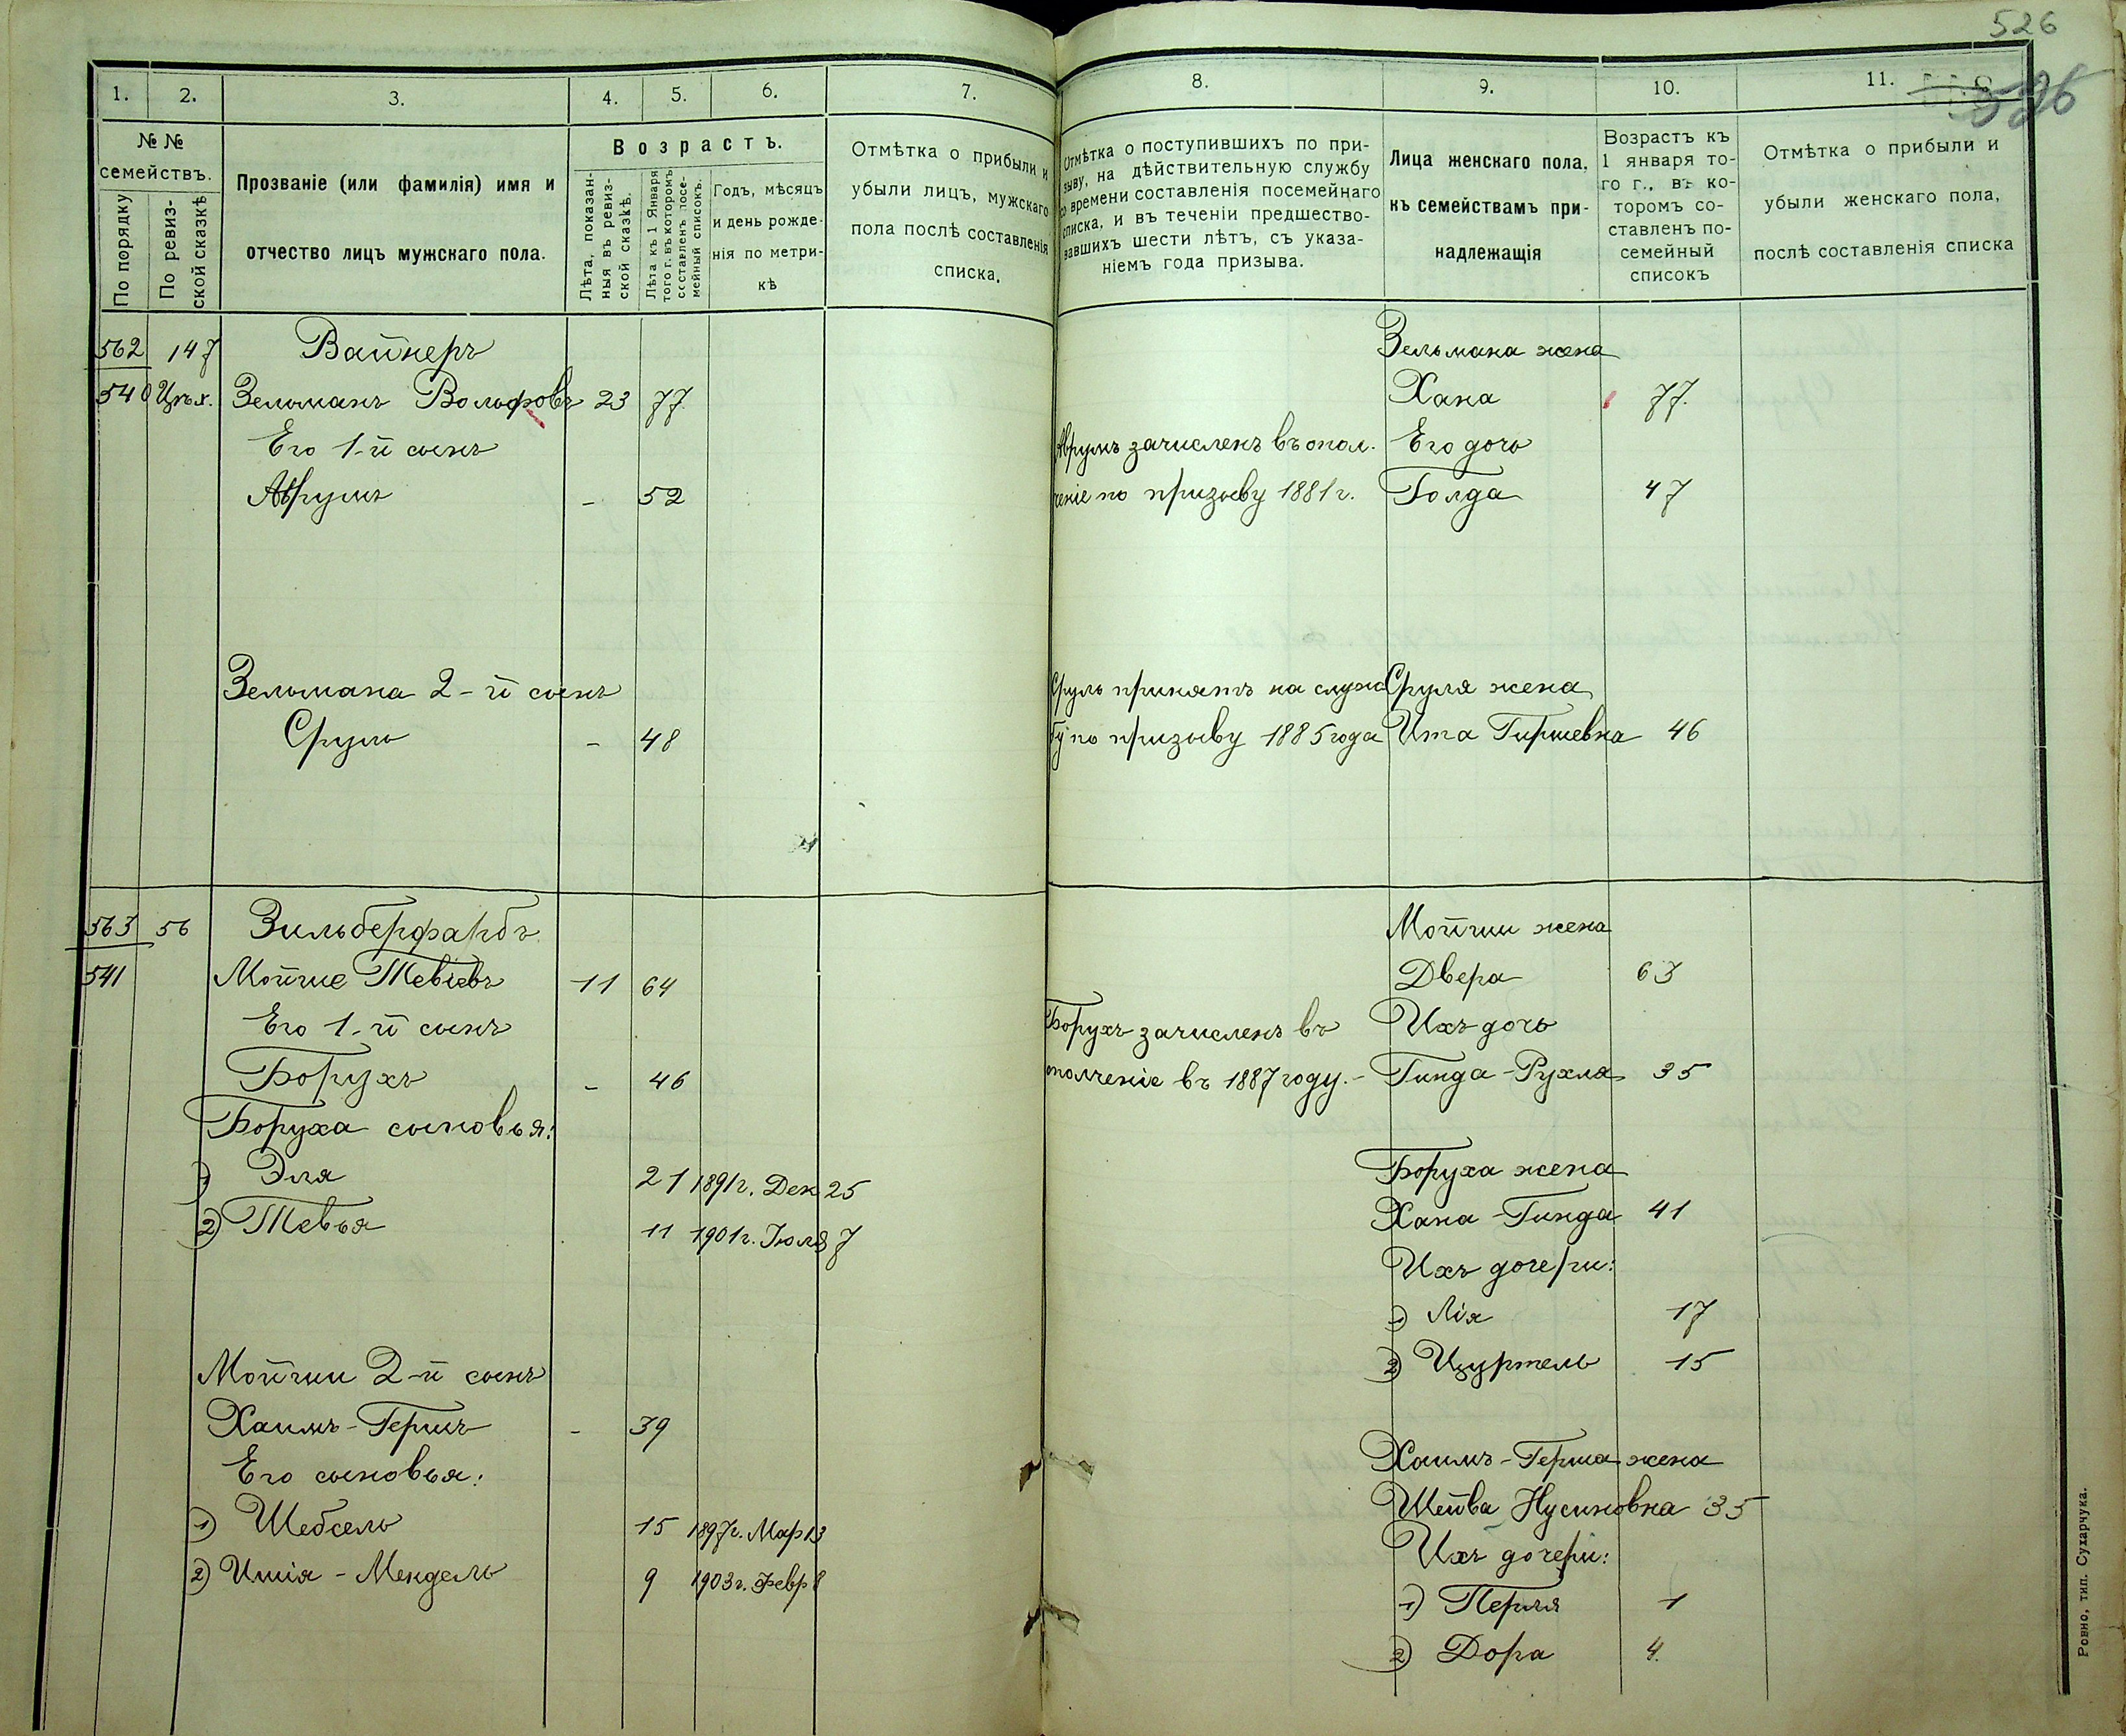 526
526
1. 2. 3. 4. 5. 6. 7.
№ №
семействъ.
По порядку
По ревиз-
ской сказкѣ
Прозваніе (или фамилія) имя и
отчество лицъ мужскаго пола.
Возрастъ.
Лѣта, показан-
ныя въ ревиз-
ской сказкѣ.
Лѣта къ 1 Января
того г. въ которомъ
составленъ посе-
мейный списокъ.
Годъ, мѣсяцъ
и день рожде-
нія по метри-
кѣ
Отмѣтка о прибыли и
убыли лицъ, мужскаго
пола послѣ составленія
списка.
562 147 Вайнеръ
540 Цѣх. Зельманъ Вольфовъ 23 77
Его 1-й сынъ
Аврумъ - 52
Зельмана 2-й сынъ
Сруль - 48
563 56 Зильберфарбъ
541 Мойше Тевіевъ 11 64
Его 1-й сынъ
Борухъ - 46
Боруха сыновья:
1) Эля 21 1891г. Дек 25
2) Тевья 11 1901г. Іюля 7
Мойши 2-й сынъ
Хаимъ-Гершъ - 39
Его сыновья:
1) Шебсель 15 1897г. Мар 13
2) Ишія-Мендель 9 1903г. Февр 8
8. 9. 10. 11.
Отмѣтка о поступившихъ по при-
зыву, на дѣйствительную службу
со времени составленія посемейнаго
списка, и въ теченіи предшество-
вавшихъ шести лѣтъ, съ указа-
ніемъ года призыва.
Лица женскаго пола,
къ семействамъ при-
надлежащія
Возрастъ къ
1 января то-
го г., въ ко-
торомъ со-
ставленъ по-
семейный
списокъ
Отмѣтка о прибыли и
убыли женскаго пола,
послѣ составленія списка
Зельмана жена
Хана 77.
Аврумъ зачисленъ въ опол- Его дочь
ченіе по призыву 1881г. Голда 47
Сруль принятъ на служ Сруля жена
бу по призыву 1885 года Ита Гиршевна 46
Мойши жена
Двера 63
Борухъ зачисленъ въ Ихъ дочь
ополченіе въ 1887 году.- Гинда-Рухля 35
Боруха жена
Хана-Гинда 41
Ихъ дочери:
1) Лія 17
2) 15
Хаимъ-Герша жена
Шейва Нусиновна 35
Ихъ дочери:
1) Перля 1
2) Дора 4.
Ровно, тип. Сухарчука.